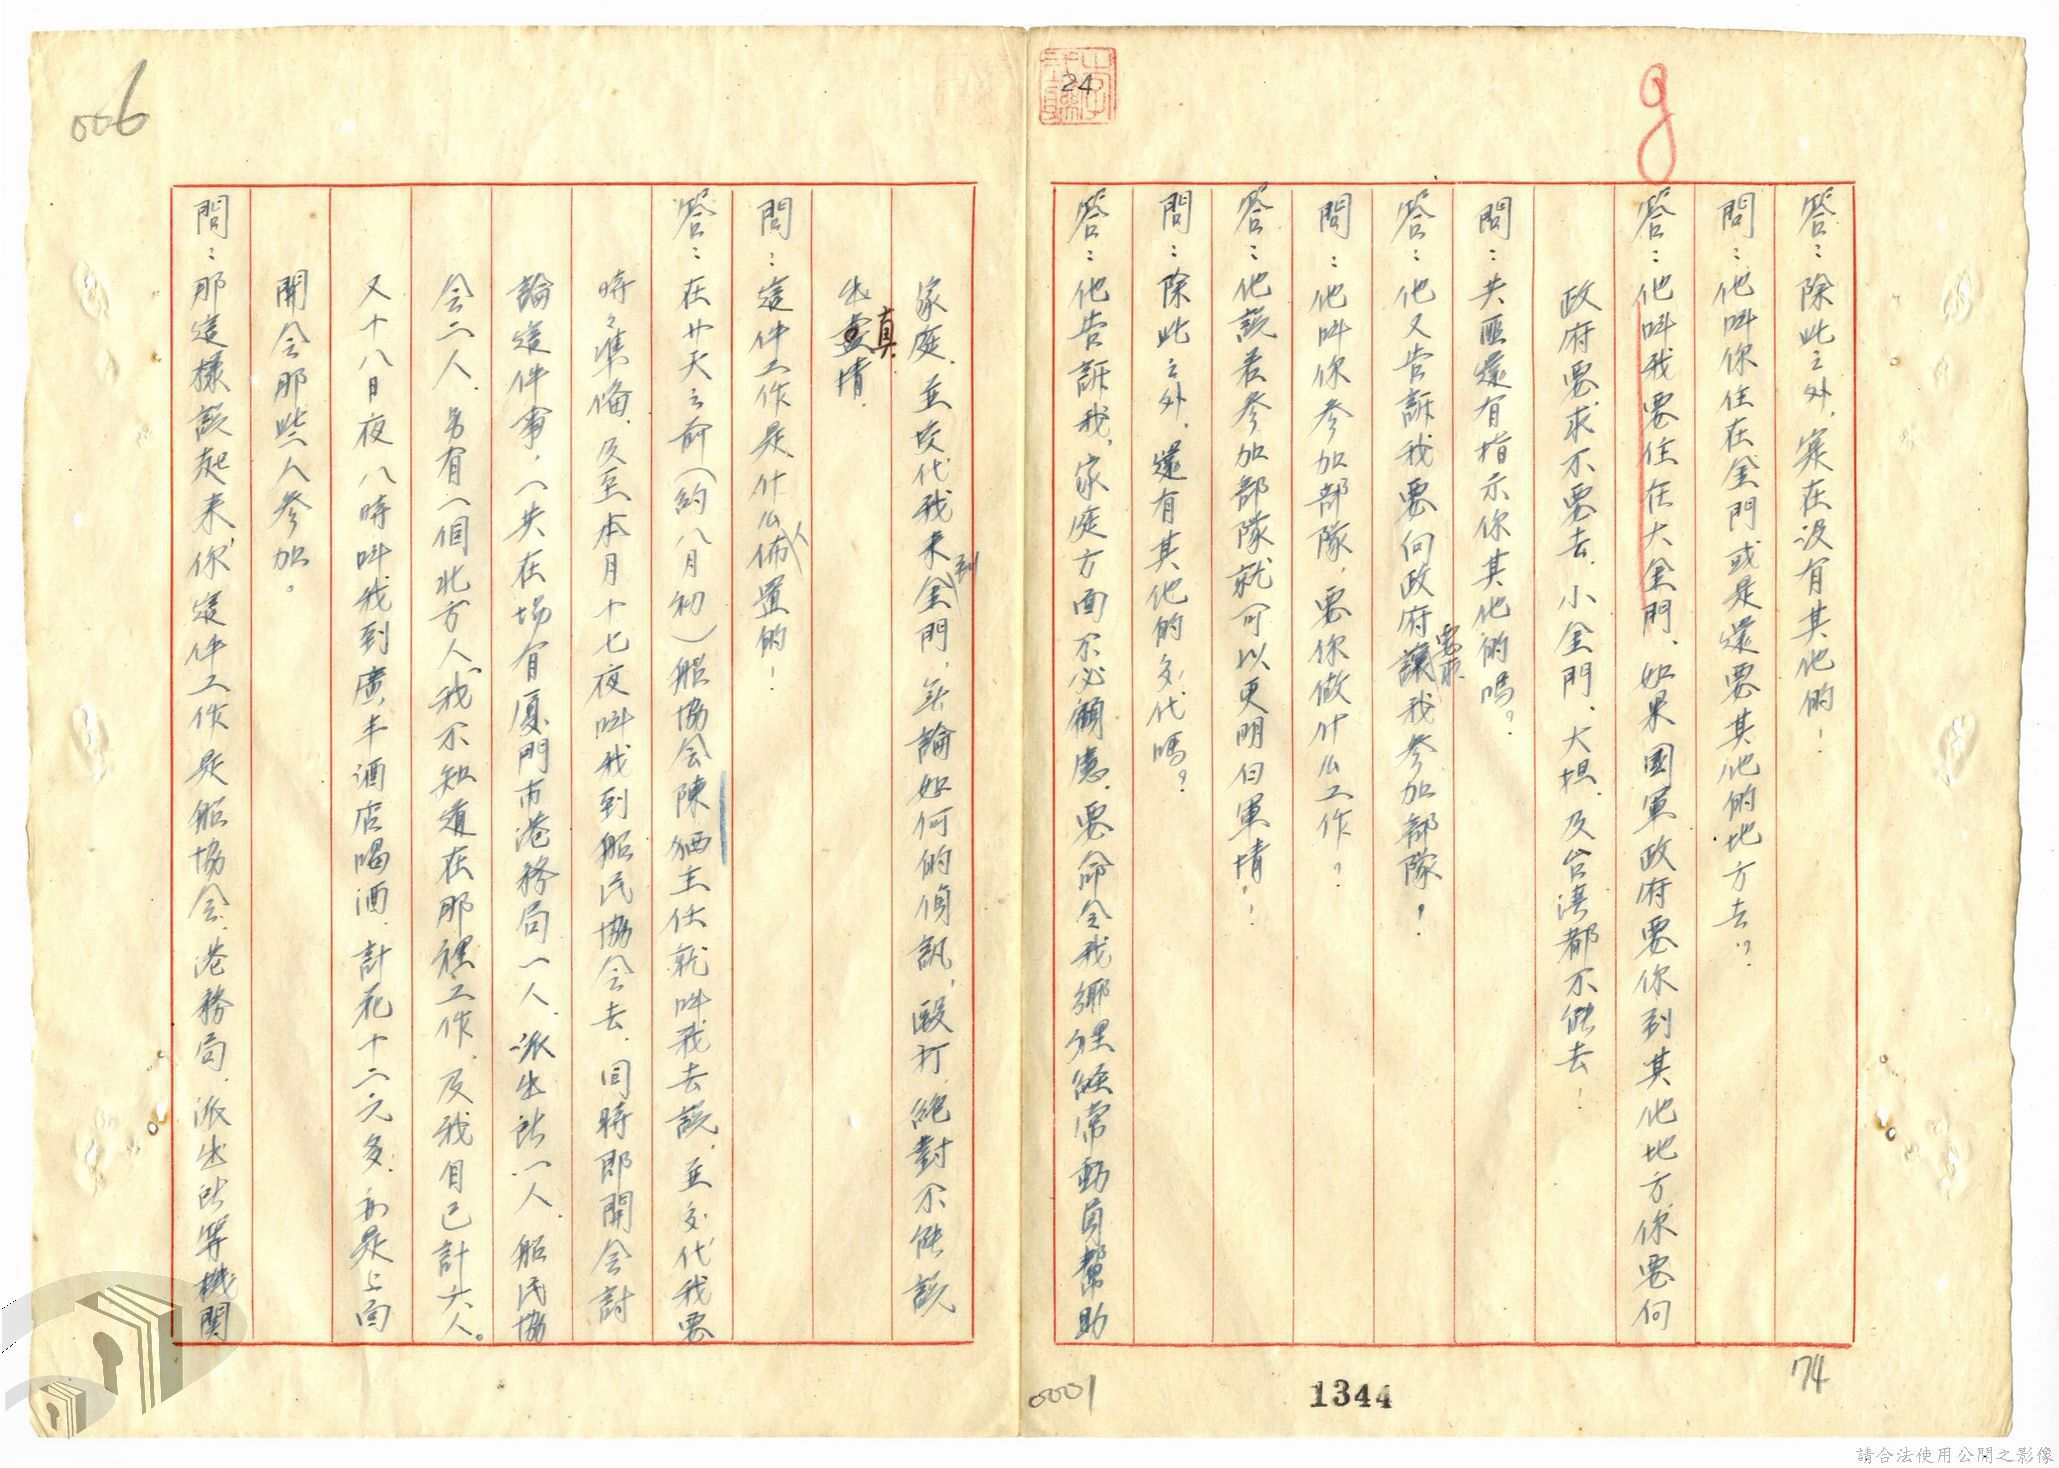 006
24
9
答：除此之外，寔在没有其他的！
問：他叫你住在金門或是還要其他的地方去？
答：他叫我要住在大金門，如果國軍政府要你到其他地方，你要向
政府要求不要去，小金門、大担、及台湾都不能去！
問：共匪還有指示你其他的嗎？
答：他又告訴我要向政府讓我參加部隊！
要求
問：他叫你參加部隊，要你做什么工作？
答：他説若參加部隊就可以更明白軍情！
問：除此之外，還有其他的交代嗎？
答：他告訴我，家庭方面不必顧慮，要命令我鄉里經常動員幫助
家庭，並交代我来金門，無論如何的偵訊，毆打，絕對不能説
到
出盡情，
真
問：這件工作是什么佈置的！
人
答：在廿天之前（約八月初）船協会陳 主任就叫我去説，並交代我要
時々準俻，及至本月十七夜叫我到船民協会去，同時即開会討
論這件事，一共在場有厦門市港務局一人，派出所一人，船民協
会二人，另有一個北方人，我不知道在那裡工作，及我自己計六人。
又十八日夜八時叫我到廣丰酒店喝酒，計花十二元多，亦是上面
開会那些人參加。
問：那這樣説起来，你這件工作是船協会，港務局，派出所等機関
0001
1344
74
請合法使用公開之影像